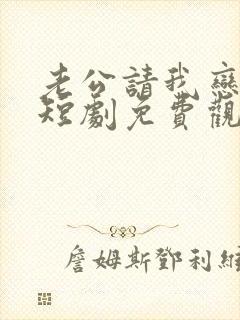 老公請我戀
短劇免費觀
詹姆斯鄧利維